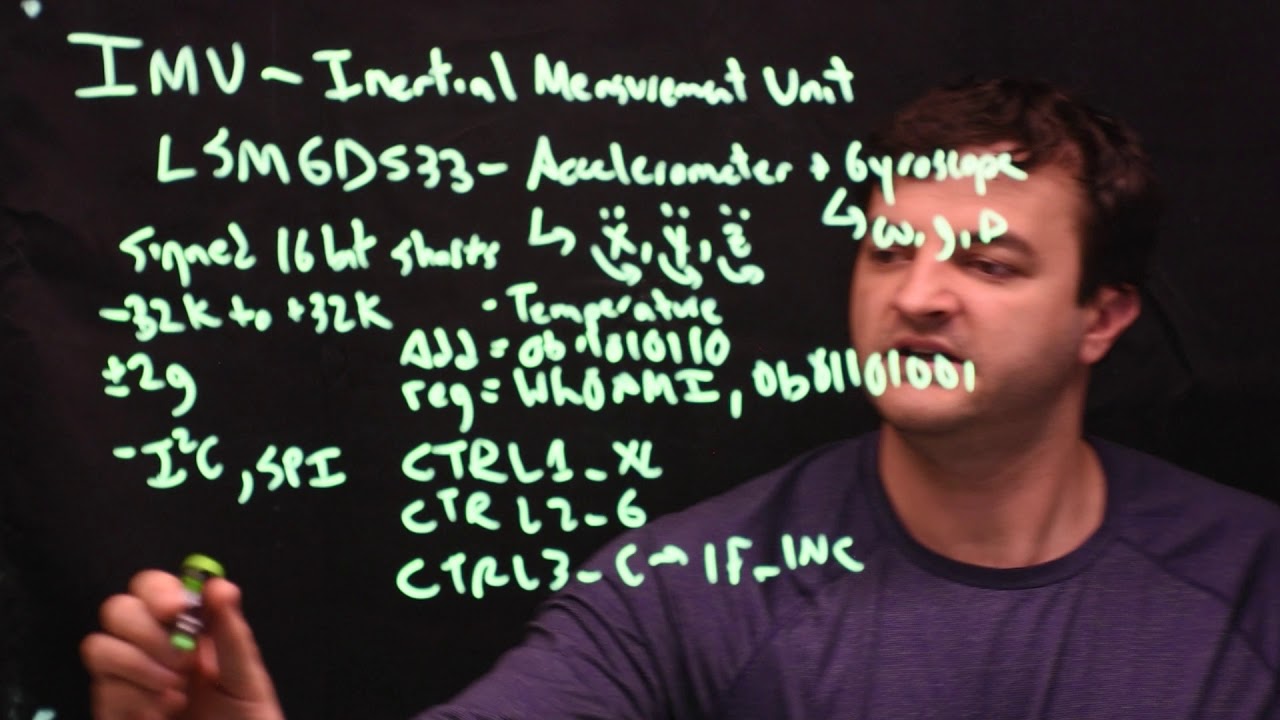 IMU - Inertial Measurement Unit
LSM6DS33 - Accelerometer + Gyroscope
Signed 16 bit shorts ↳ ẍ, ÿ, z̈ ↳
-32K to +32K - Temperature
Add = 0b
±2g reg = WHOAMI, 0b
- I²C, SPI CTRL1_XL
CTRL2_G
CTRL3_C → IF_INC